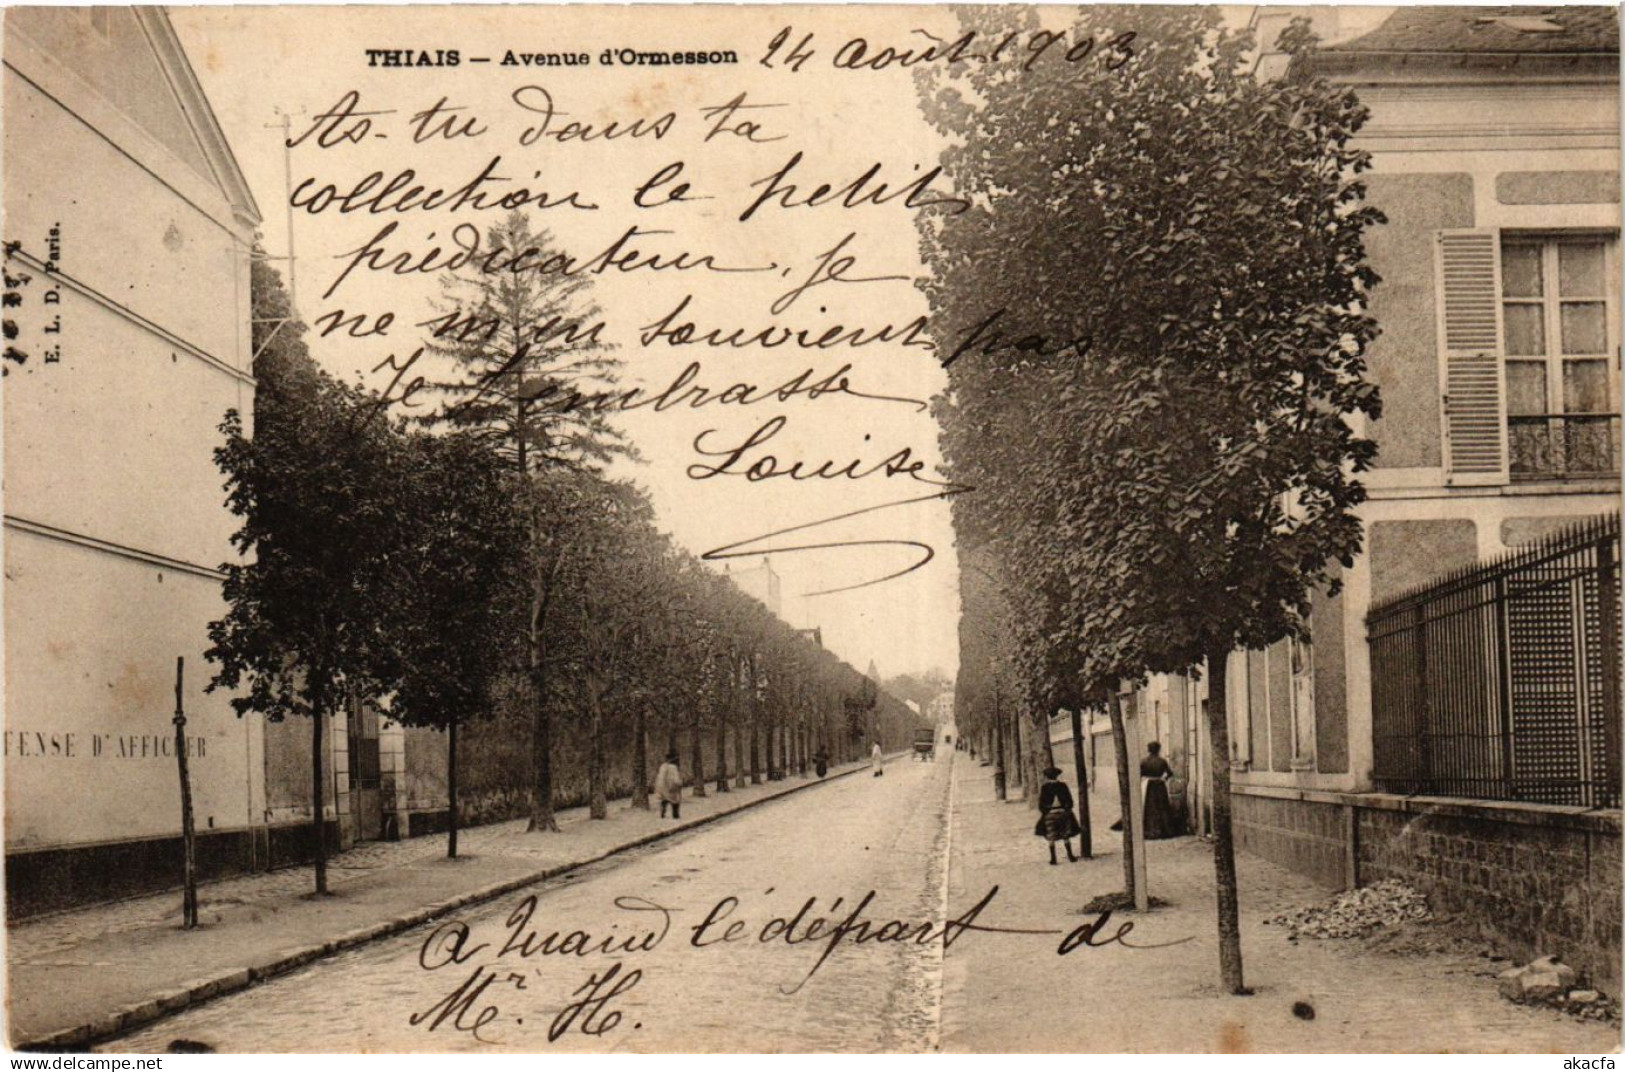 THIAIS — Avenue d'Ormesson 24 Août 1903
As-tu dans ta
collection le petit
prédicateur, je
ne m'en souvient pas
Je t'embrasse
Louise
E. L. D. Paris.
FENSE D'AFFICHER
a quand lé départ de
Mr. H.
akacfa